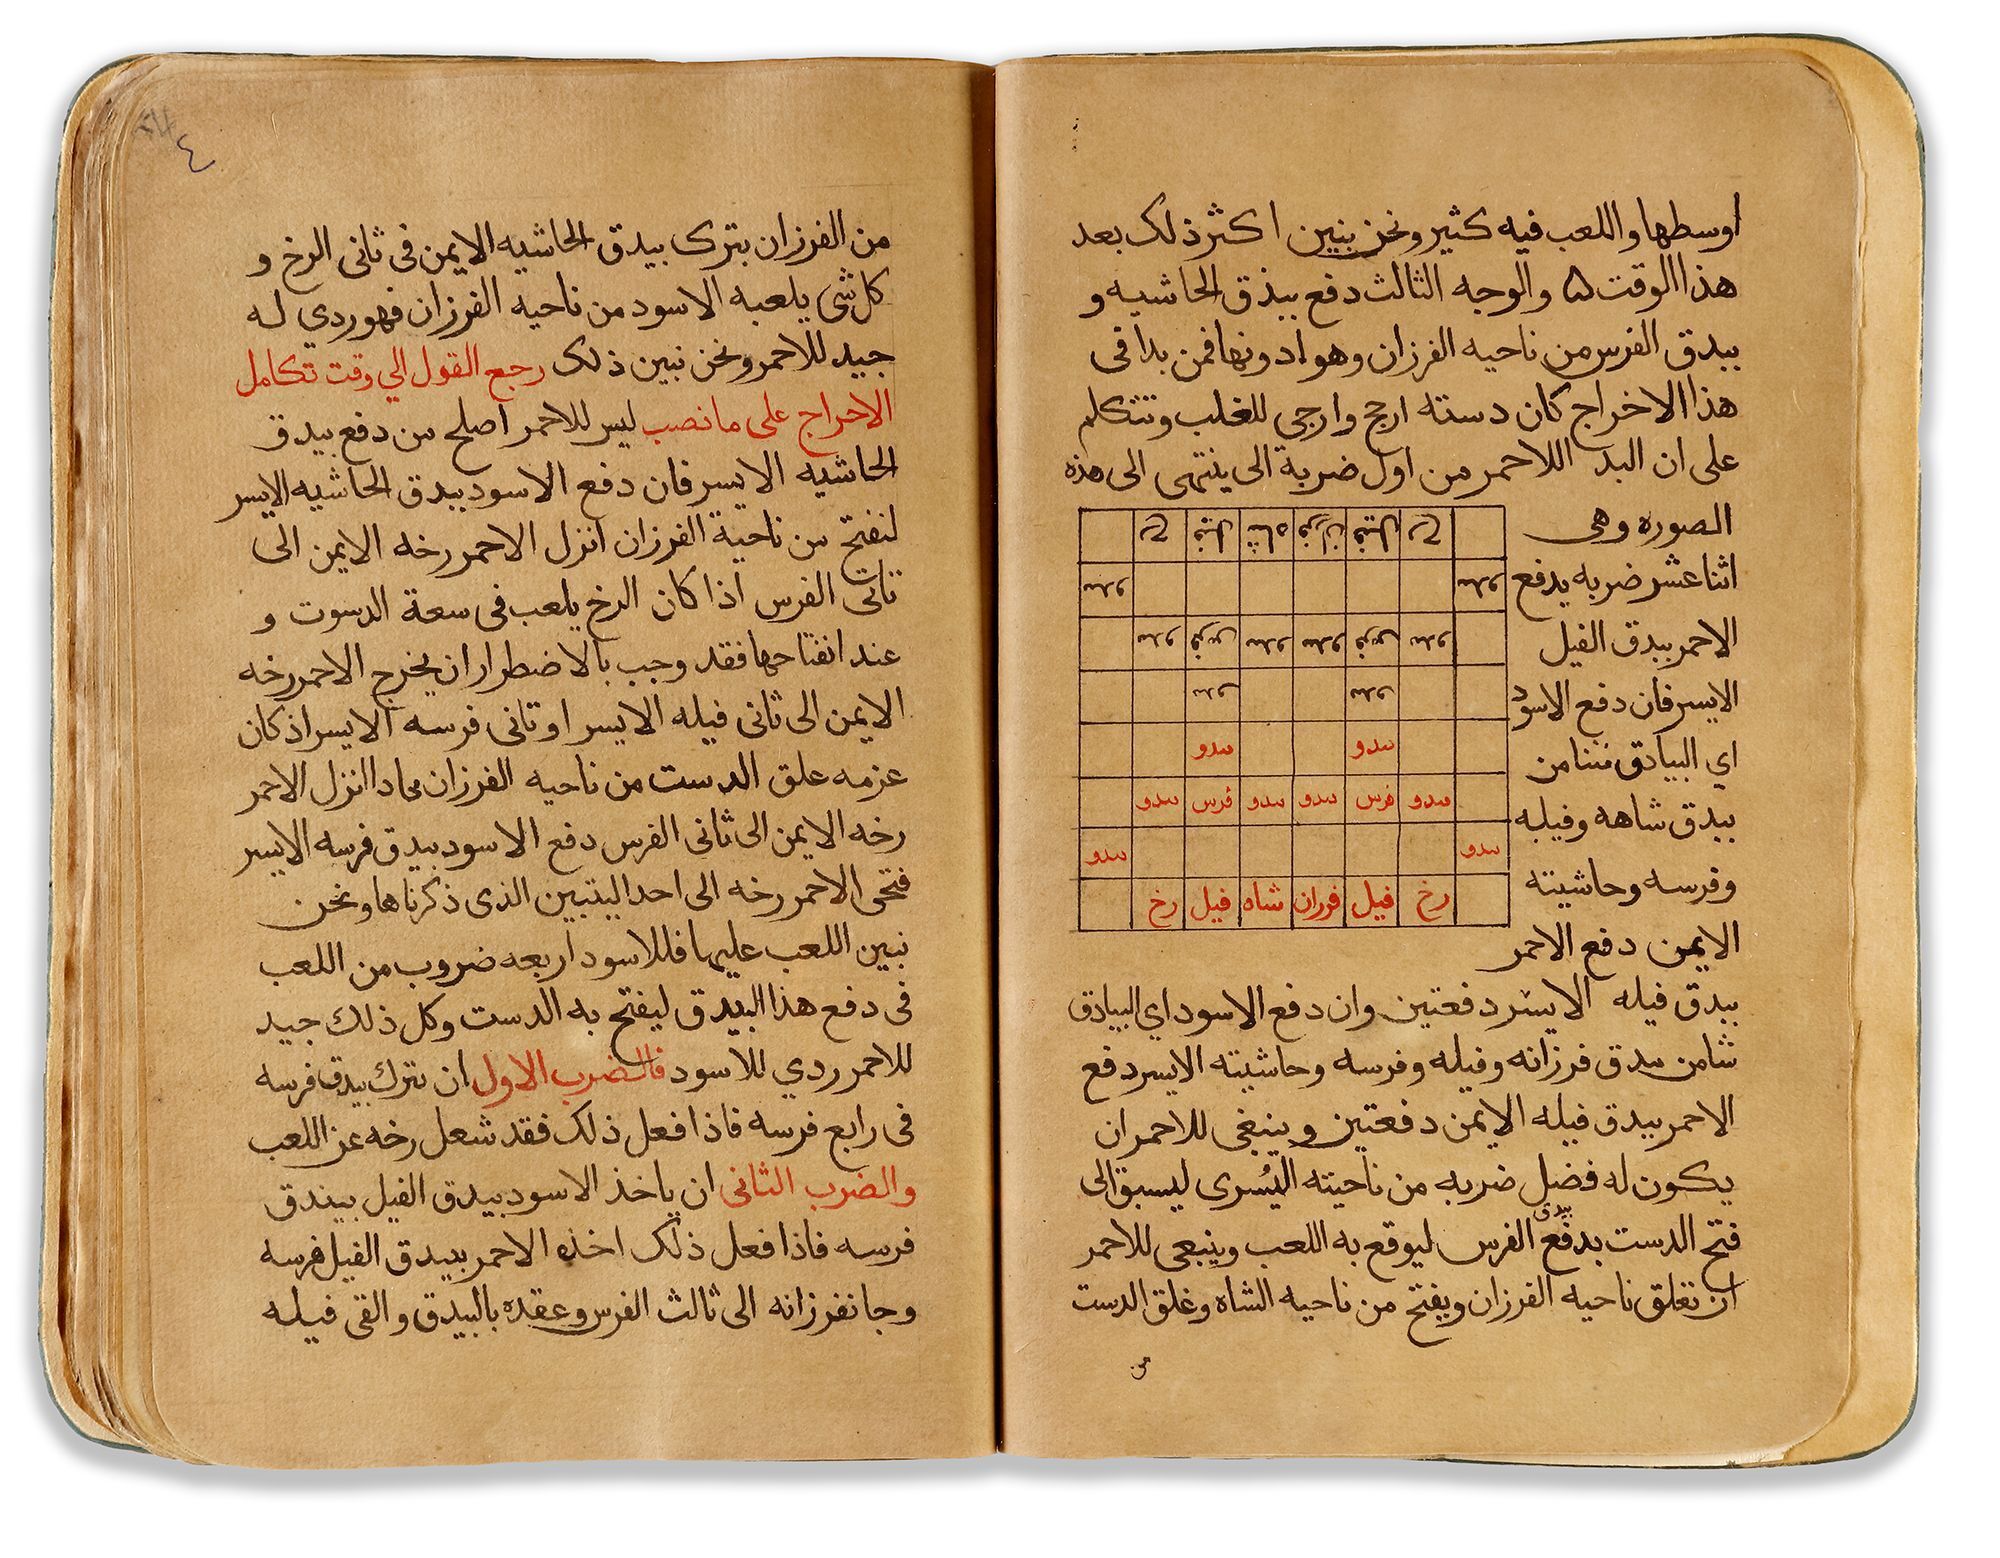 اوسطها واللعب فيه كثير ونحن نبين اكثر ذلك بعد
هذا الوقت ۵ والوجه الثالث دفع بيذق الحاشيه و
بيدق الفرس من ناحيه الفرزان وهو ادونها فمن بدا فى
هذا الاخراج كان دسته ارجح وارجى للغلب ونتكلم
على ان البد اللاحمر من اول ضربة الى ينتهى الى هذه
الصوره وهى
رخ فيل فرزان شاه فيل رخ
بيدق بيدق
بيدق فرس بيدق بيدق فرس بيدق
بيدق بيدق
بيدق بيدق
بيدق فرس بيدق بيدق فرس بيدق
بيدق بيدق
رخ فيل فرزان شاه فيل رخ
اثنا عشر ضربه يدفع
الاحمر بيدق الفيل
الايسر فان دفع الاسود
اي البيادق شا من
بيدق شاهه وفيله
وفرسه وحاشيته
الايمن دفع الاحمر
بيدق فيله الايسر دفعتين وان دفع الاسود اي البيادق
شا من بيدق فرزانه وفيله وفرسه وحاشيته الايسر دفع
الاحمر بيدق فيله الايمن دفعتين وينبغى للاحمر ان
يكون له فضل ضربه من ناحيته اليُسرى ليسبق الى
فتح الدست بدفع بيدق الفرس ليوقع به اللعب وينبغى للاحمر
ان تغلق ناحيه الفرزان ويفتح من ناحيه الشاه وغلق الدست
من
٤
من الفرزان بترك بيدق الحاشيه الايمن فى ثانى الرخ و
كل شى يلعبه الاسود من ناحيه الفرزان فهو ردي له
جيد للاحمر ونحن نبين ذلك رجع القول الي وقت تكامل
الاخراج على ما نصب ليس للاحمر اصلح من دفع بيدق
الحاشيه الايسر فان دفع الاسود بيدق الحاشيه الايسر
لنفتح من ناحية الفرزان انزل الاحمر رخه الايمن الى
ثانى الفرس اذا كان الرخ يلعب فى سعة الدسوت و
عند انفتاحها فقد وجب بالاضطرار ان يخرج الاحمر رخه
الايمن الى ثانى فيله الايسر او ثانى فرسه الايسر اذ كان
عزمه غلق الدست من ناحيه الفرزان فاذا انزل الاحمر
رخه الايمن الى ثانى الفرس دفع الاسود بيدق فرسه الايسر
فتحى الاحمر رخه الى احد البيتين الذى ذكرناها ونحن
نبين اللعب عليها فللاسود اربعه ضروب من اللعب
فى دفع هذا البيدق ليفتح به الدست وكل ذلك جيد
للاحمر ردي للاسود فالضرب الاول ان يترك بيدق فرسه
فى رابع فرسه فاذا فعل ذلك فقد شغل رخه عن اللعب
والضرب الثانى ان ياخذ الاسود بيدق الفيل ببيندق
فرسه فاذا فعل ذلك اخذه الاحمر ببيدق الفيل فرسه
وجا نفرزانه الى ثالث الفرس وعقده بالبيدق والقى فيله